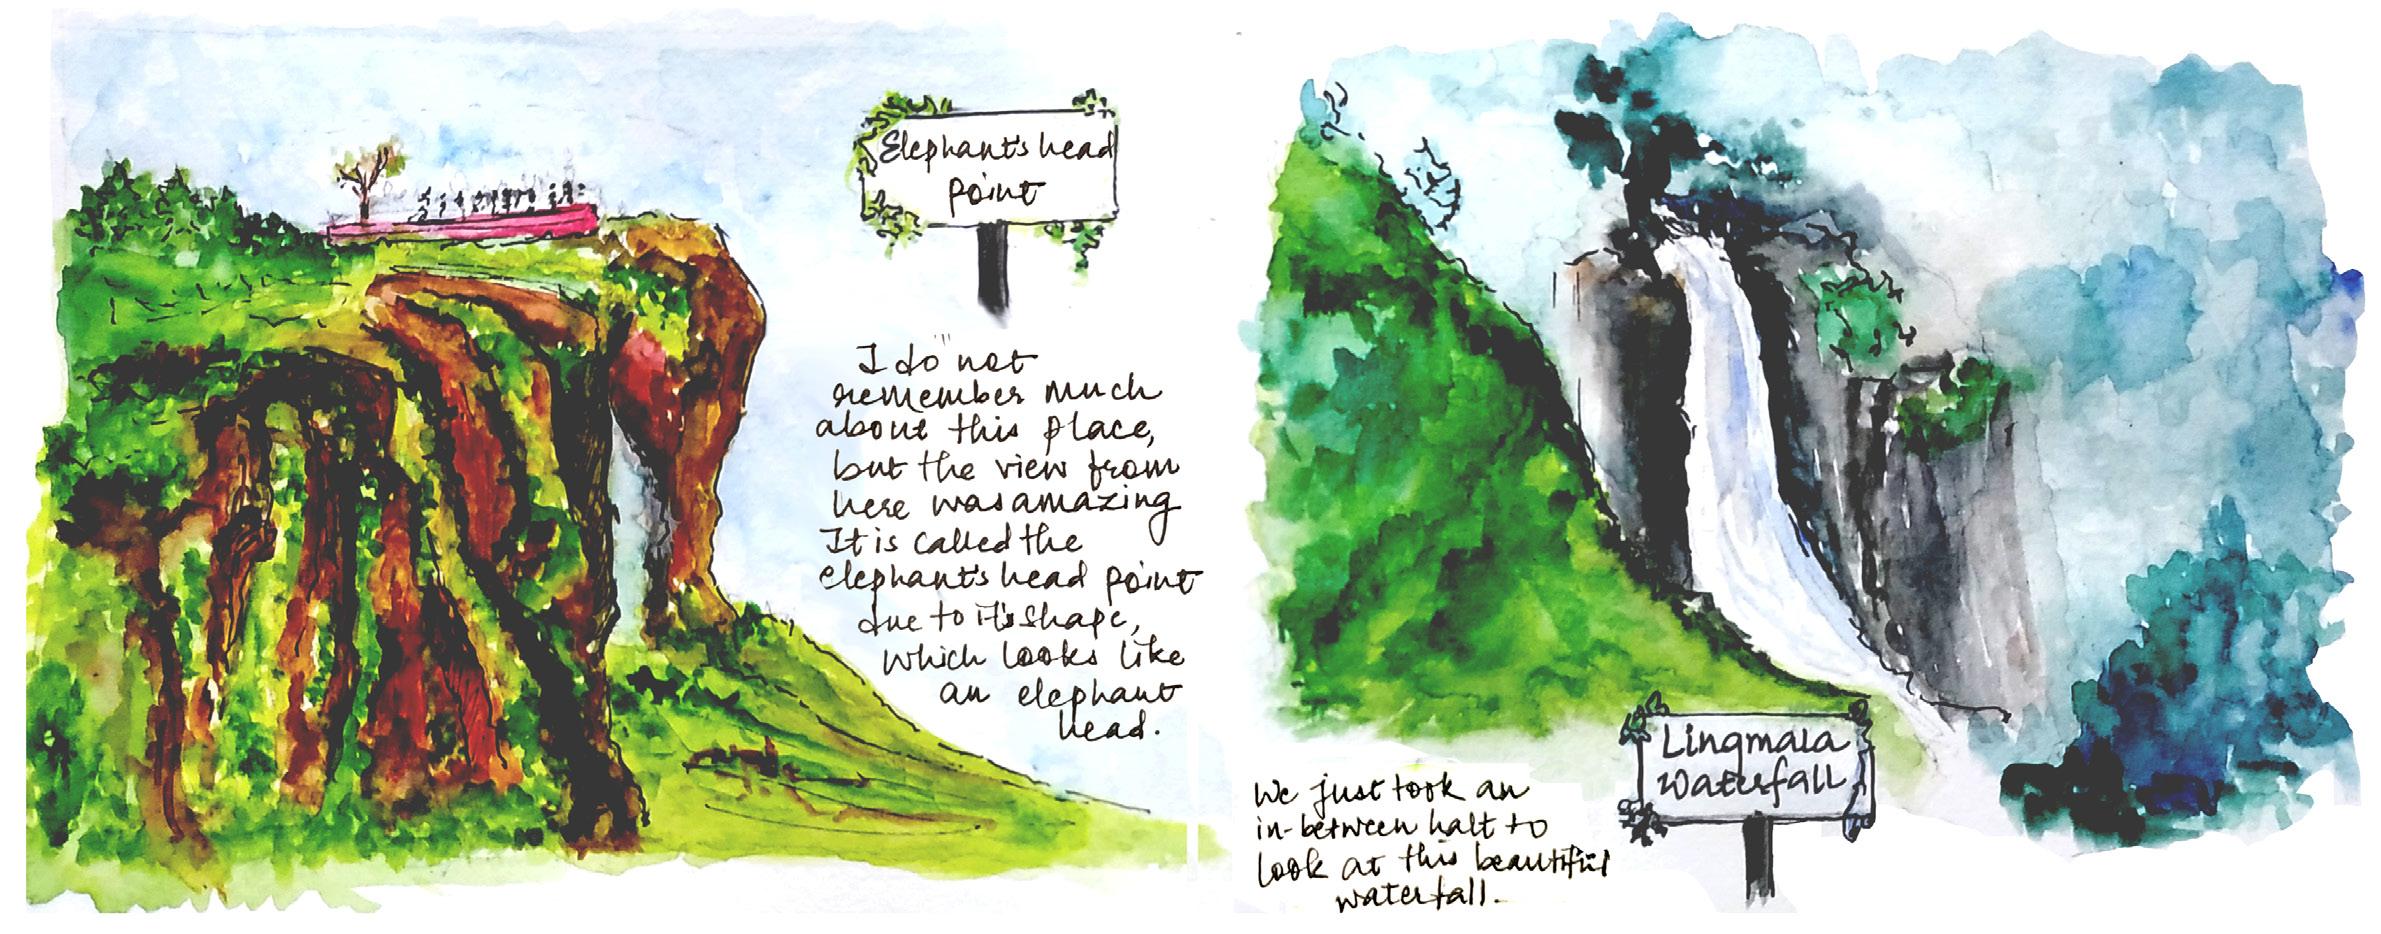 Elephant's head
point
I do not
remember much
about this place,
but the view from
here was amazing
It is called the
elephant's head point
due to it's shape,
which looks like
an elephant
head.
Lingmala
Waterfall
We just took an
in-between halt to
look at this beautiful
waterfall.